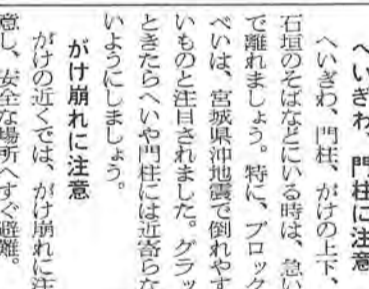 へいぎわ、門柱に注意
へいぎわ、門柱、がけの上下、
石垣のそばなどにいる時は、急い
で離れましょう。特に、ブロック
べいは、宮城県沖地震で倒れやす
いものと注目されました。グラッ
ときたらへいや門柱には近寄らな
いようにしましょう。
がけ崩れに注意
がけの近くでは、がけ崩れに注
意し、安全な場所へすぐ避難。